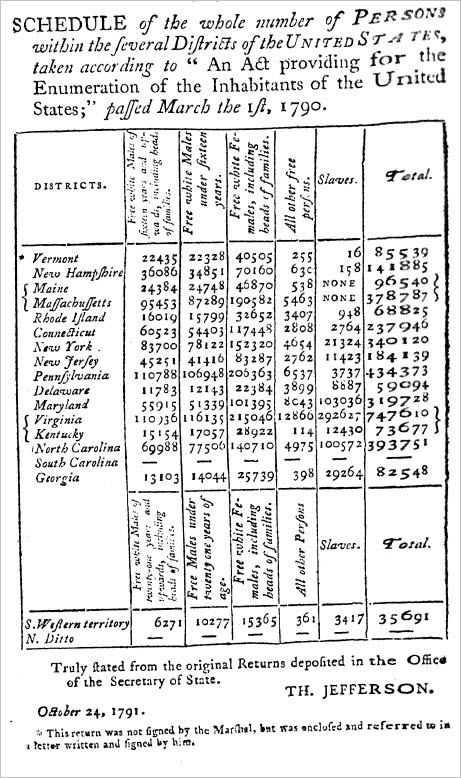 SCHEDULE of the whole number of PERSONS
within the ſeveral Diſtricts of the UNITED STATES,
taken according to “ An Act providing for the
Enumeration of the Inhabitants of the United
States;” paſſed March the 1ſt, 1790.
DISTRICTS. Free white Males of ſixteen years and upwards, including heads of families. Free white Males under ſixteen years. Free white Females, including heads of families. All other free perſons. Slaves. Total.
* Vermont 22435 22328 40505 255 16 85539
New Hampſhire 36086 34851 70160 630 158 141885
Maine 24384 24748 46870 538 NONE 96540
Maſſachuſſetts 95453 87289 190582 5463 NONE 378787
Rhode Iſland 16019 15799 32652 3407 948 68825
Connecticut 60523 54403 117448 2808 2764 237946
New York 83700 78122 152320 4654 21324 340120
New Jerſey 45251 41416 83287 2762 11423 184139
Pennſylvania 110788 106948 206363 6537 3737 434373
Delaware 11783 12143 22384 3899 8887 59094
Maryland 55915 51339 101395 8043 103036 319728
Virginia 110936 116135 215046 12866 292627 747610
Kentucky 15154 17057 28922 114 12430 73677
North Carolina 69988 77506 140710 4975 100572 393751
South Carolina — — — — — —
Georgia 13103 14044 25739 398 29264 82548
Free white Males of twenty-one years and upwards, including heads of families. Free Males under twenty one years of age. Free white Females, including heads of families. All other Perſons Slaves. Total.
S. Weſtern territory 6271 10277 15365 361 3417 35691
N. Ditto — — — — — —
Truly ſtated from the original Returns depoſited in the Office
of the Secretary of State.
TH. JEFFERSON.
October 24, 1791.
* This return was not ſigned by the Marſhal, but was encloſed and referred to in
a letter written and ſigned by him.